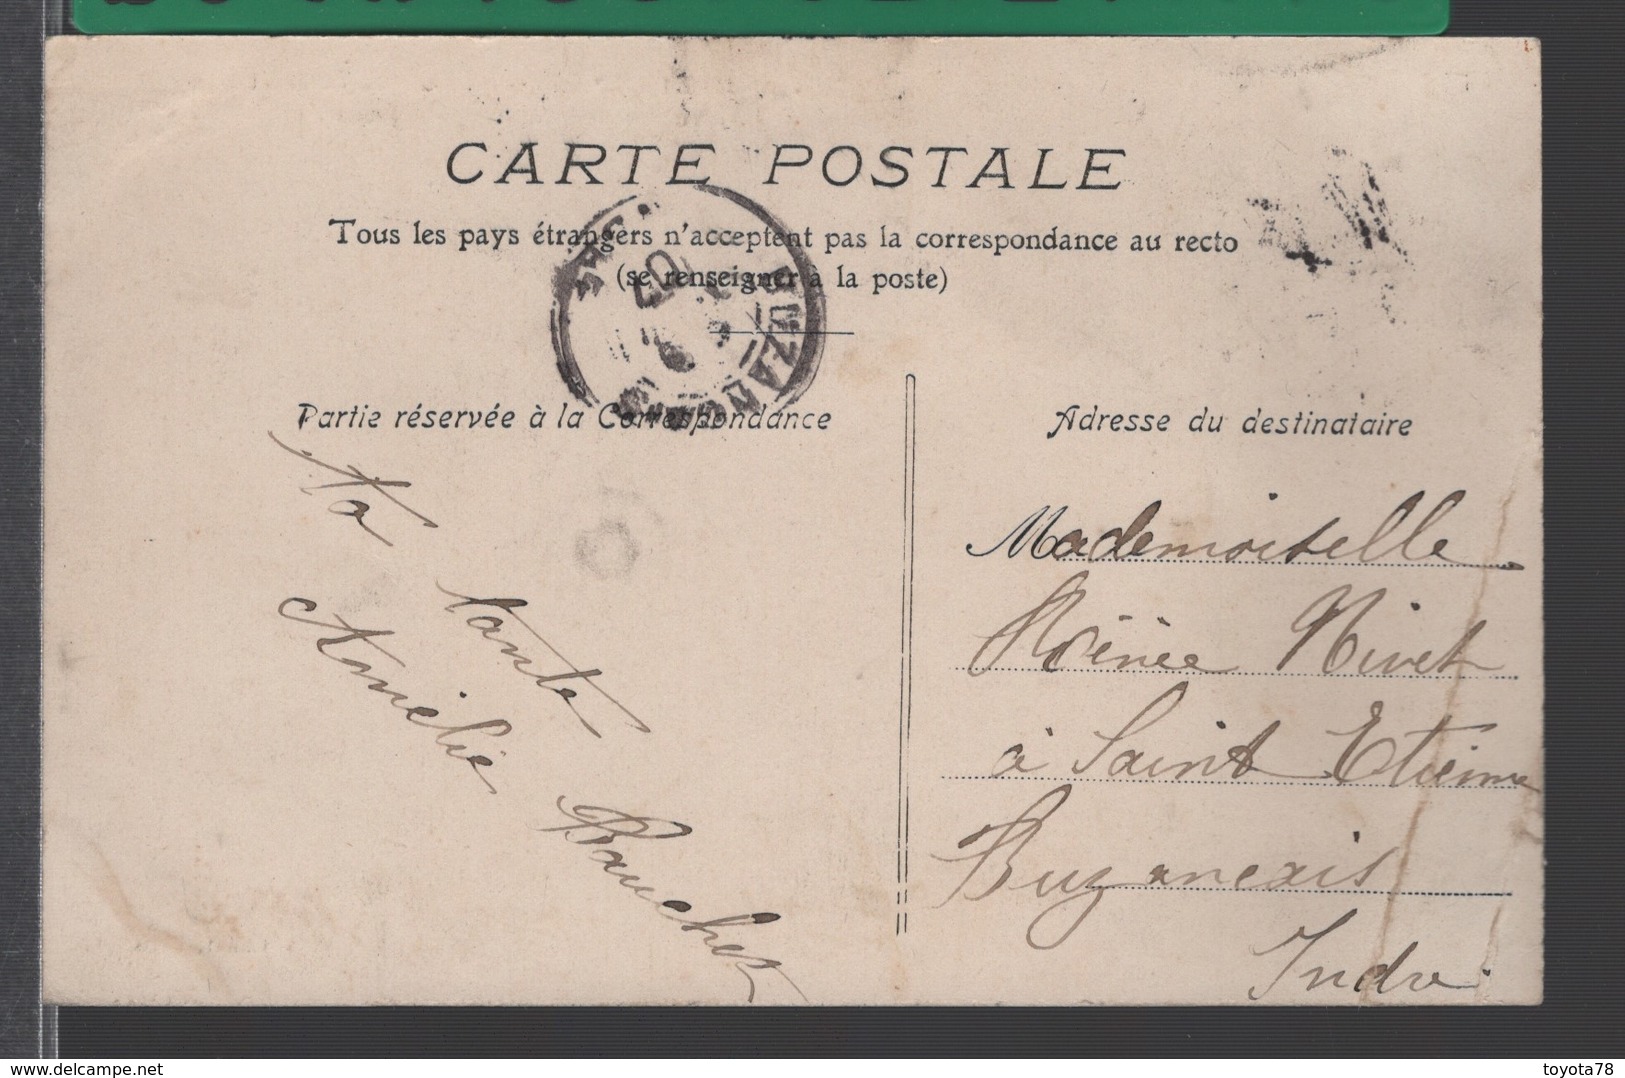 CARTE POSTALE
Tous les pays étrangers n'acceptent pas la correspondance au recto
(se renseigner à la poste)
BUZANCAIS
07
Partie réservée à la Correspondance
Ta tante
Amélie Bauchet
Adresse du destinataire
Mademoiselle
Rénée Nivet
à Saint Etienne
Buzancais
Indre
delcampe.net
toyota78